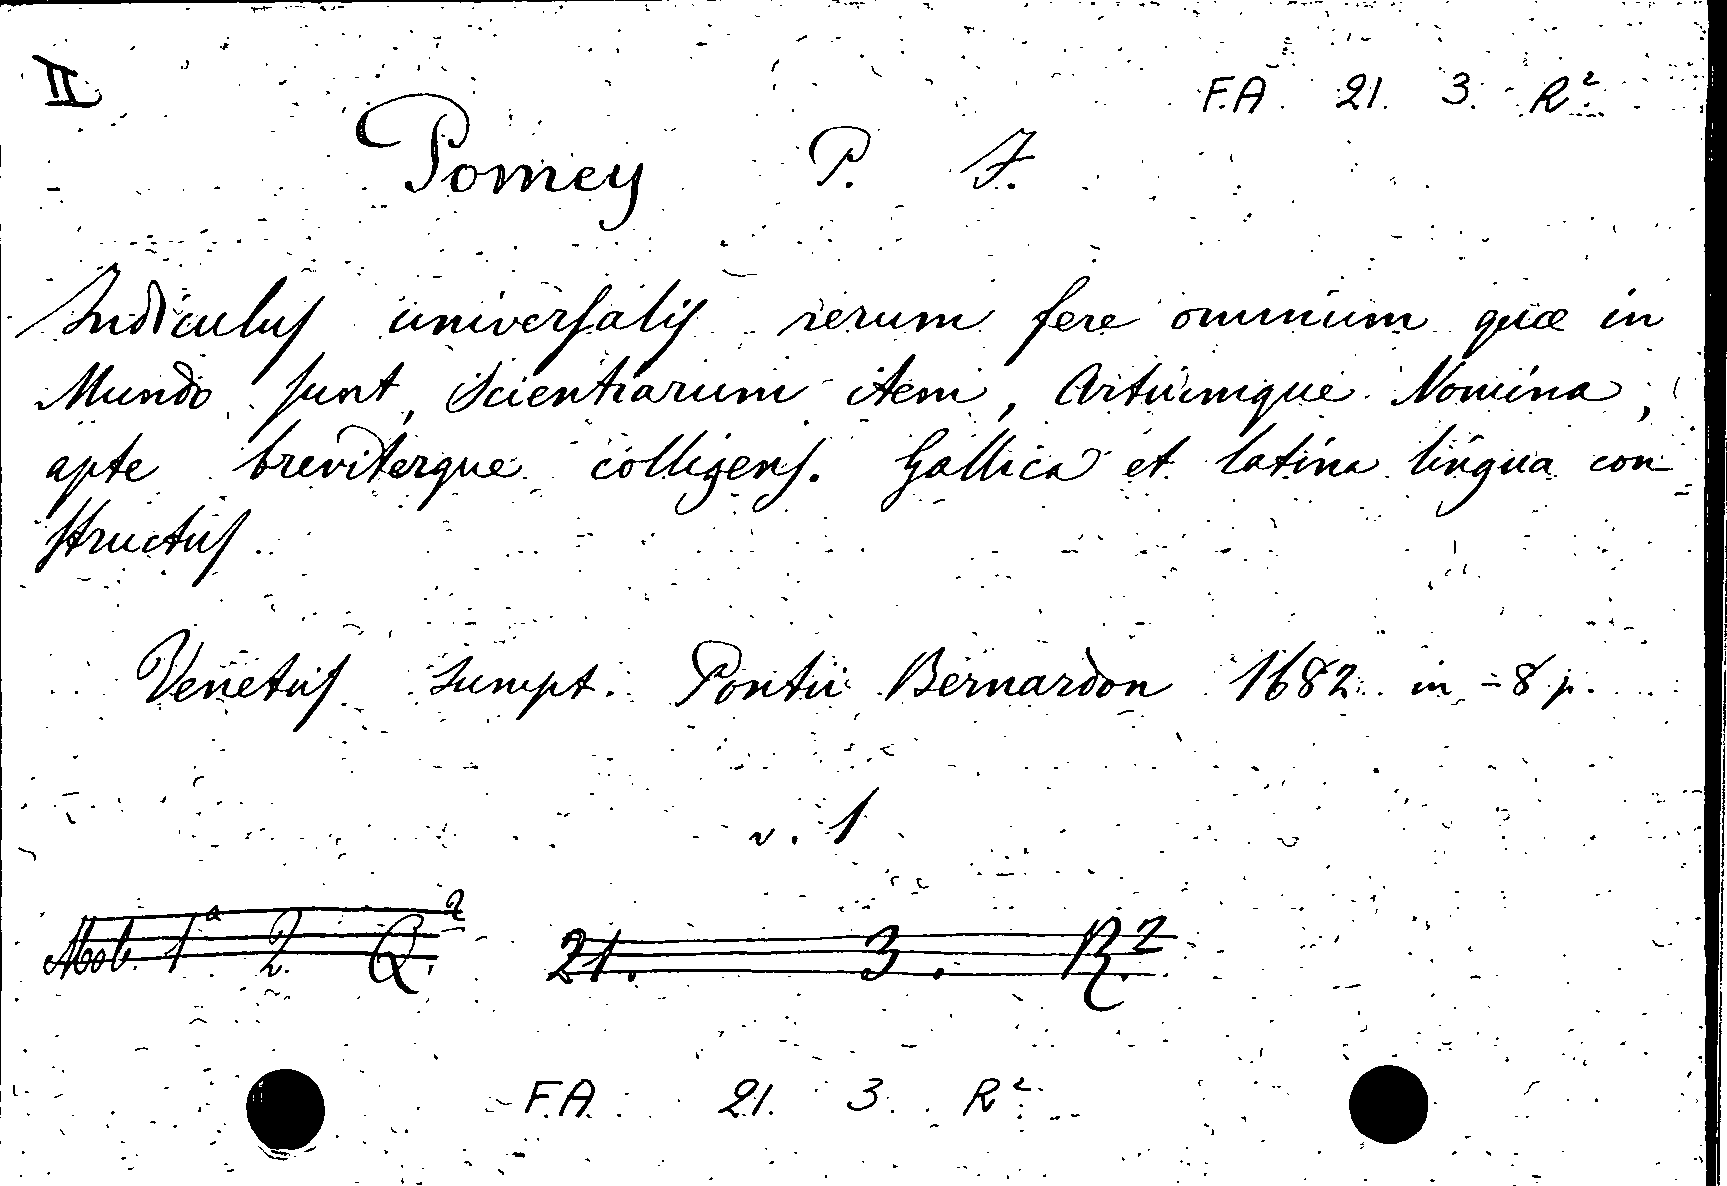 II
F.A. 21. 3. R²
Pomey P. J.
Indiculus universalis rerum fere omnium quæ in
Mundo sunt, Scientiarum item, Artiumque Nomina,
apte breviterque colligens. Gallica et latina lingua con-
structus.
Venetiis sumpt. Pontii Bernardon 1682 in-8 p.
v. 1
Mob. 1ª 2. Q.² 21. 3. R.²
F.A. 21. 3. R²